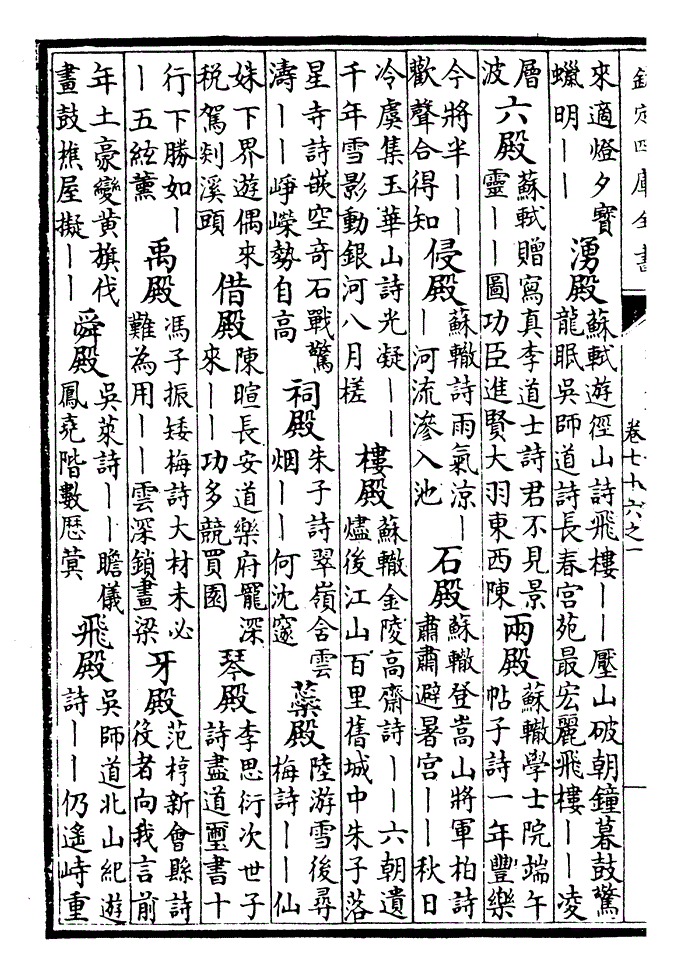 欽定四庫全書
卷七十六之一
來適燈夕寳
蠟明｜｜
湧殿
蘇軾遊徑山詩飛樓｜｜壓山破朝鐘暮鼓驚
龍眠吳師道詩長春宫苑最宏麗飛樓｜｜凌
層
波
六殿
蘇軾贈寫真李道士詩君不見景
靈｜｜圖功臣進賢大羽東西陳
兩殿
蘇轍學士院端午
帖子詩一年豐樂
今將半｜｜｜
歡聲合得知
侵殿
蘇轍詩雨氣涼｜
｜河流滲入池
石殿
蘇轍登嵩山將軍柏詩
肅肅避暑宫｜｜秋日
冷虞集玉華山詩光凝｜｜
千年雪影動銀河八月槎
樓殿
蘇轍金陵高齋詩｜｜六朝遺
燼後江山百里舊城中朱子落
星寺詩嵌空奇石戰驚
濤｜｜崢嶸勢自高
祠殿
朱子詩翠嶺含雲
烟｜｜何沈邃
蘂殿
陸游雪後尋
梅詩｜｜仙
姝下界遊偶來
税駕剡溪頭
借殿
陳暄長安道樂府寵深
來｜｜功多競買園
琴殿
李思衍次世子
詩盡道璽書十
行下勝如｜
｜五絃薰
禹殿
馮子振矮梅詩大材未必
難為用｜｜雲深鎖畫梁
牙殿
范梈新會縣詩
役者向我言前
年土豪變黄旗伐
畫鼓樵屋擬｜｜
舜殿
吳萊詩｜｜瞻儀
鳳堯階數歴蓂
飛殿
吳師道北山紀遊
詩｜｜仍遙峙重